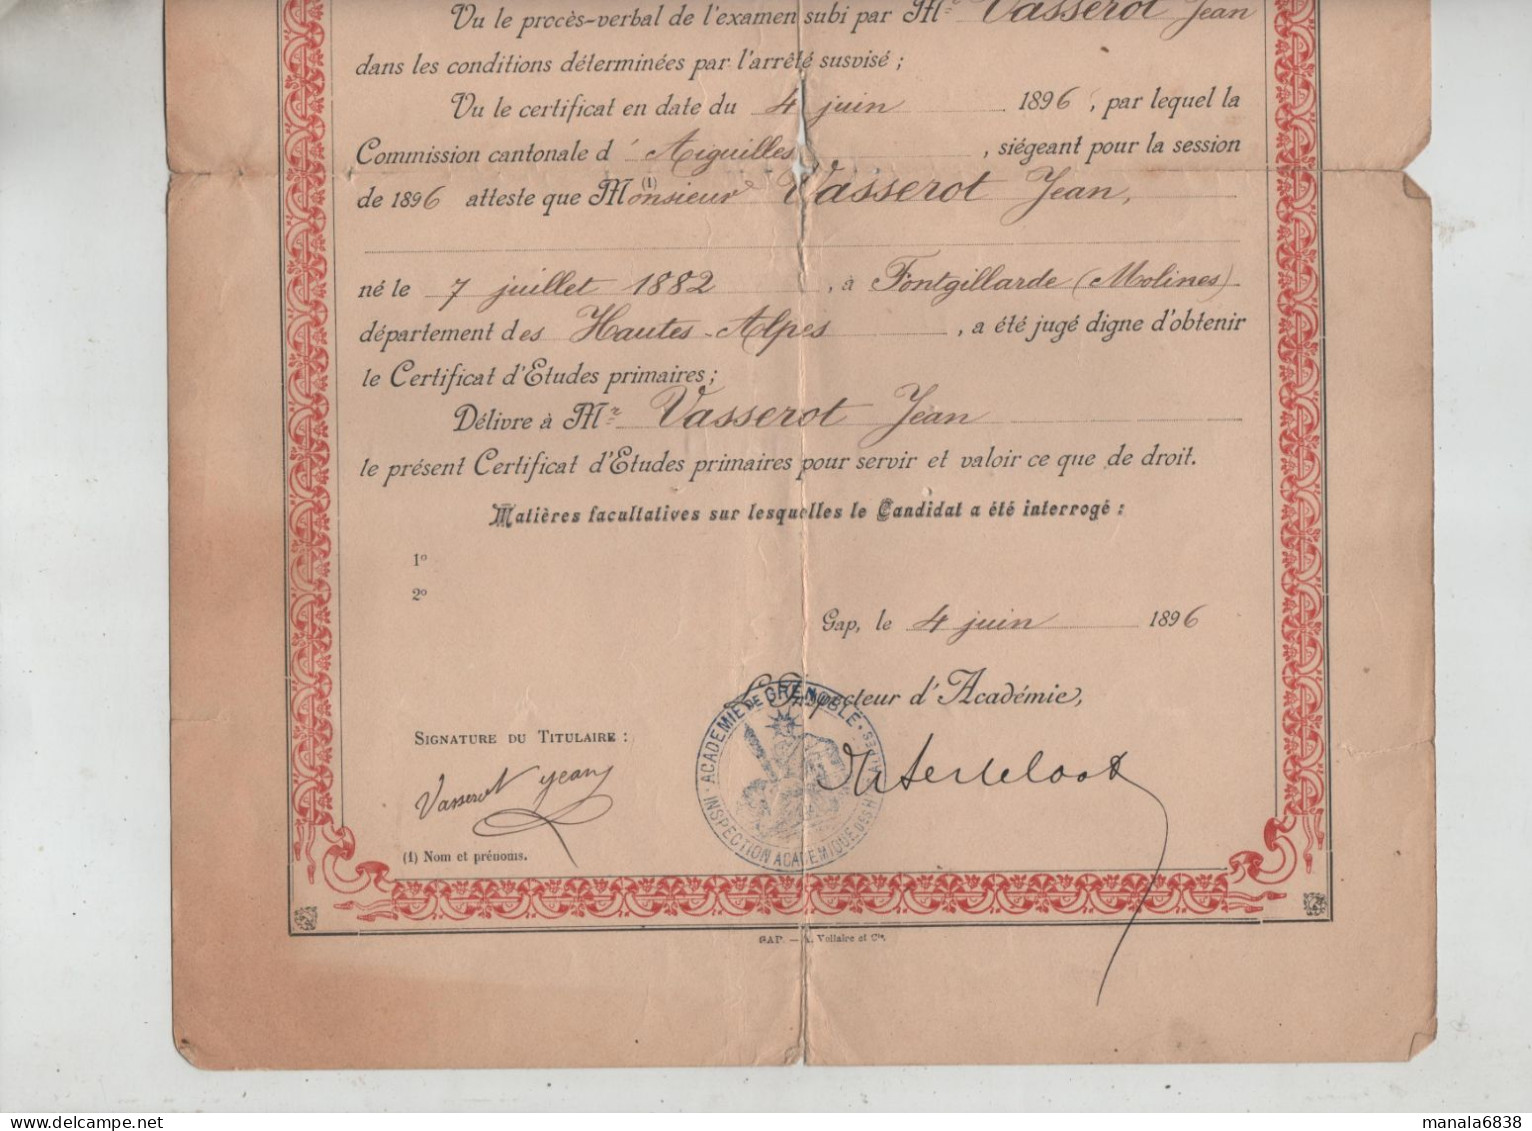 Vu le procès-verbal de l'examen subi par Mr Vasserot Jean
dans les conditions déterminées par l'arrêté susvisé ;
Vu le certificat en date du 4 juin 1896, par lequel la
Commission cantonale d' Aiguilles, siégeant pour la session
de 1896 atteste que Monsieur (1) Vasserot Jean,
né le 7 juillet 1882, à Fontgillarde (Molines)
département des Hautes-Alpes, a été jugé digne d'obtenir
le Certificat d'Etudes primaires ;
Délivre à Mr Vasserot Jean
le présent Certificat d'Etudes primaires pour servir et valoir ce que de droit.
Matières facultatives sur lesquelles le Candidat a été interrogé :
1º
2º
Gap, le 4 juin 1896
L'Inspecteur d'Académie,
SIGNATURE DU TITULAIRE :
Vasserot Jean
ACADEMIE DE GRENOBLE
INSPECTION ACADEMIQUE DES H
(1) Nom et prénoms.
GAP. — A. Vollaire et Cie.
manala6838